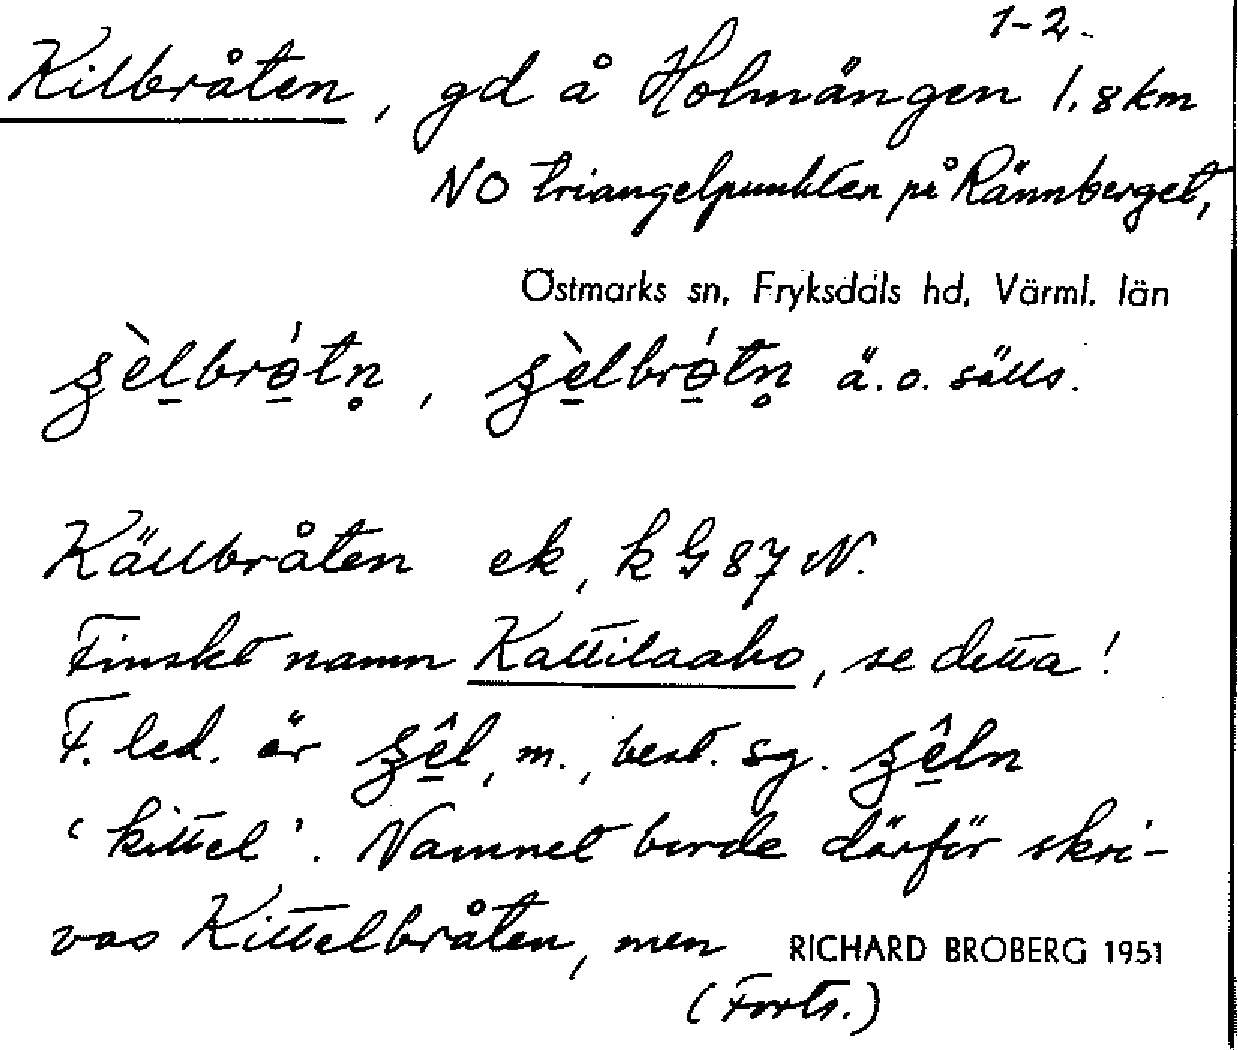 1-2.
Kilbråten, gd å Holmängen 1,8 km
NO triangelpunkten på Rännberget,
Östmarks sn, Fryksdals hd, Värml. län
ä.o. sälls.
Källbråten ek, k G 87 N.
Finskt namn Kattilaaho, se detta!
F. led. är m., best. sg.
'kittel'. Namnet borde därför skri-
vas Kittelbråten, men RICHARD BROBERG 1951
(Forts.)